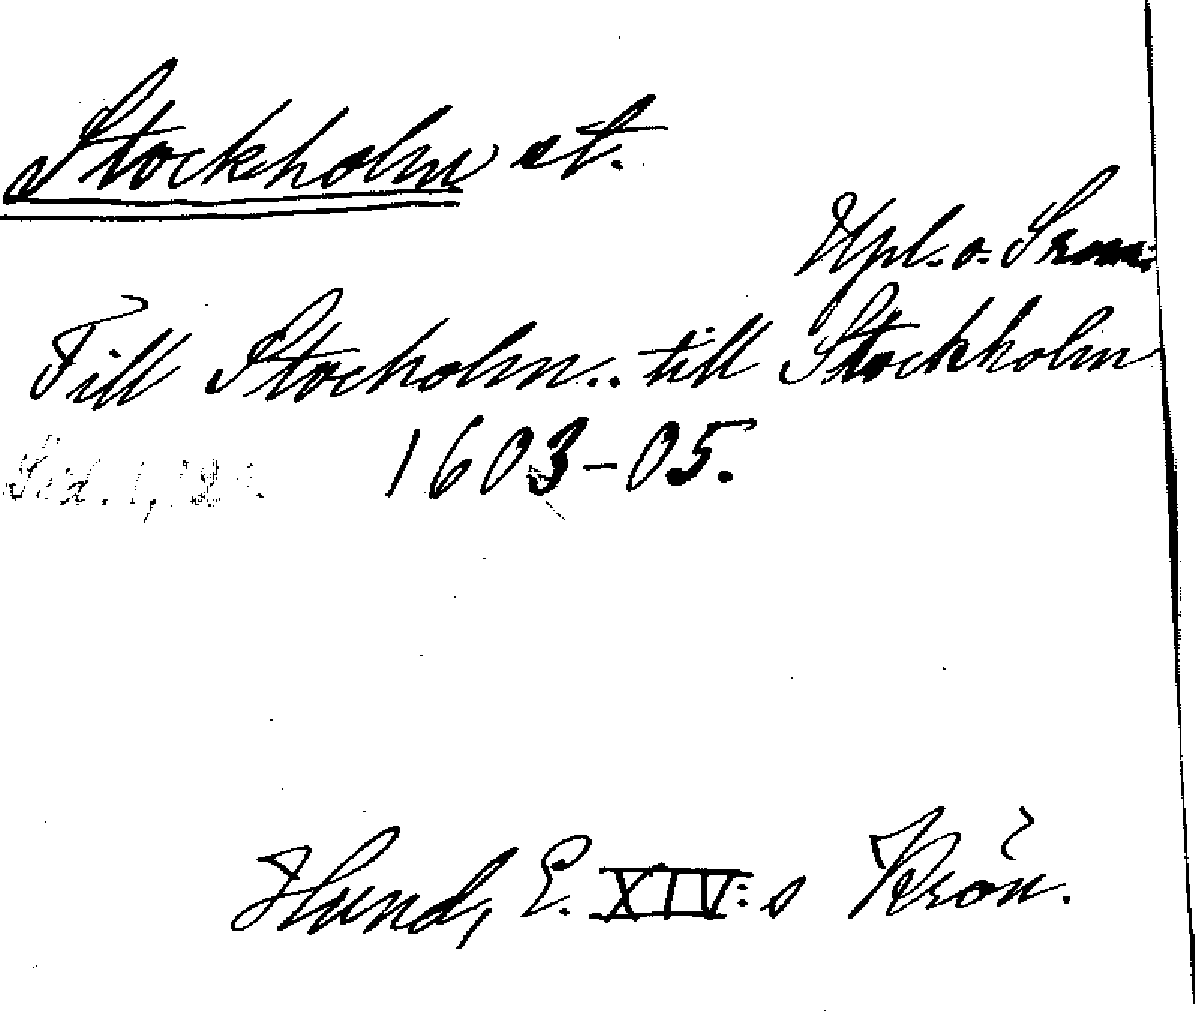 Stockholm st.
Upl. o. Srm:
Till Stocholm.. till Stockholm
1603-05.
Hund, E. XIV:s Krön.